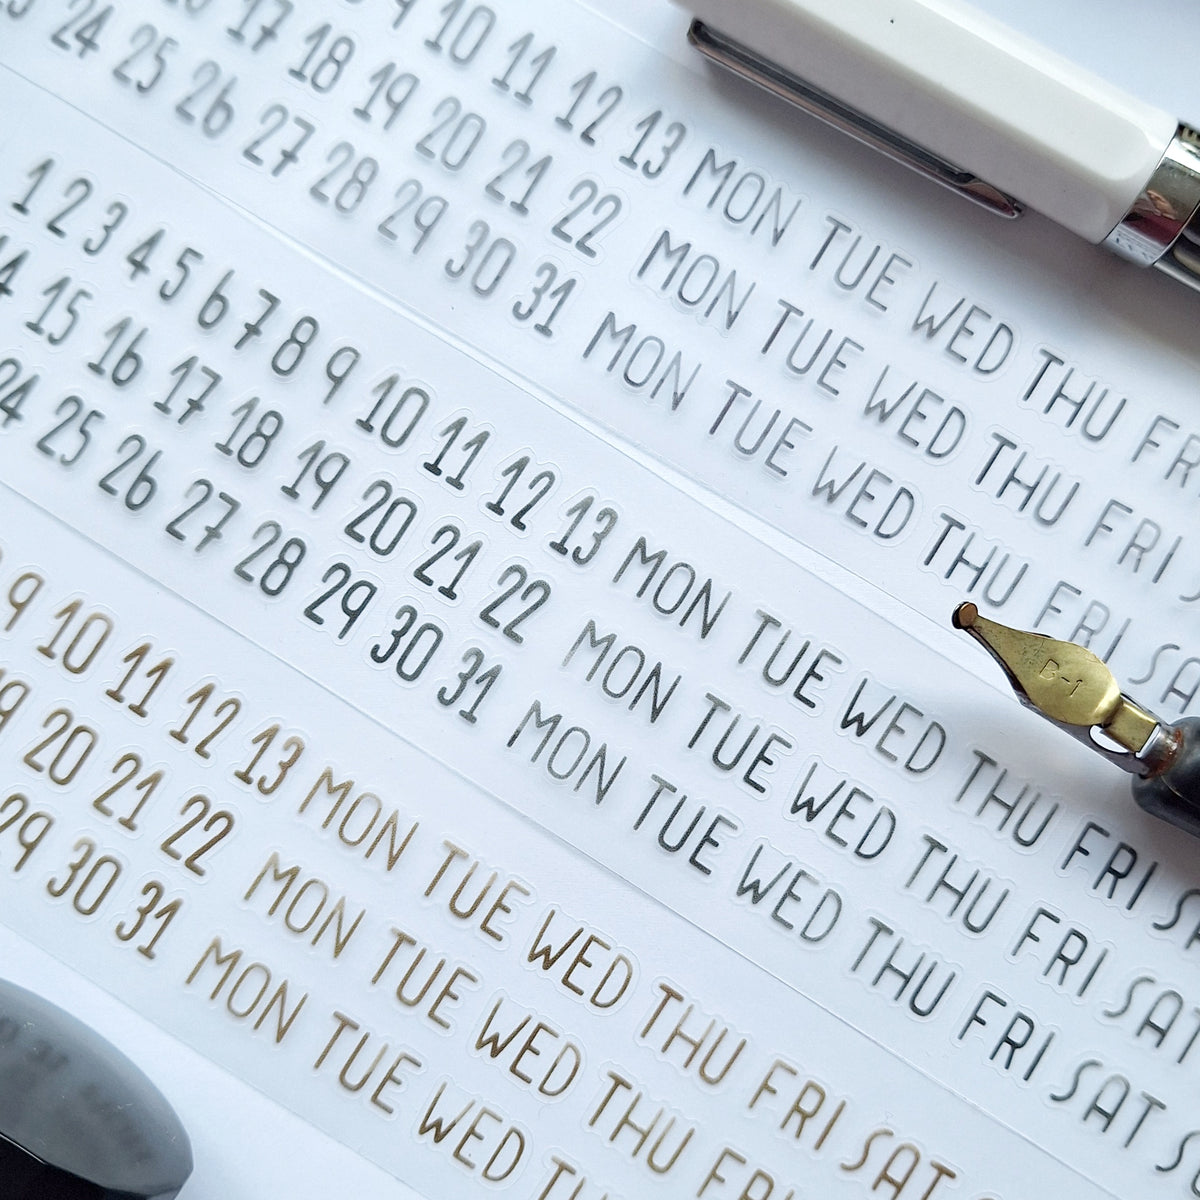 9 10 11 12 13 MON TUE WED THU FR
17 18 19 20 21 22 MON TUE WED THU FRI S
24 25 26 27 28 29 30 31 MON TUE WED THU FRI SA
1 2 3 4 5 6 7 8 9 10 11 12 13 MON TUE WED THU FRI SA
14 15 16 17 18 19 20 21 22 MON TUE WED THU FRI SAT
24 25 26 27 28 29 30 31 MON TUE WED THU FRI SAT S
9 10 11 12 13 MON TUE WED THU FRI SAT
19 20 21 22 MON TUE WED THU FRI
29 30 31 MON TUE WED TH
B-1